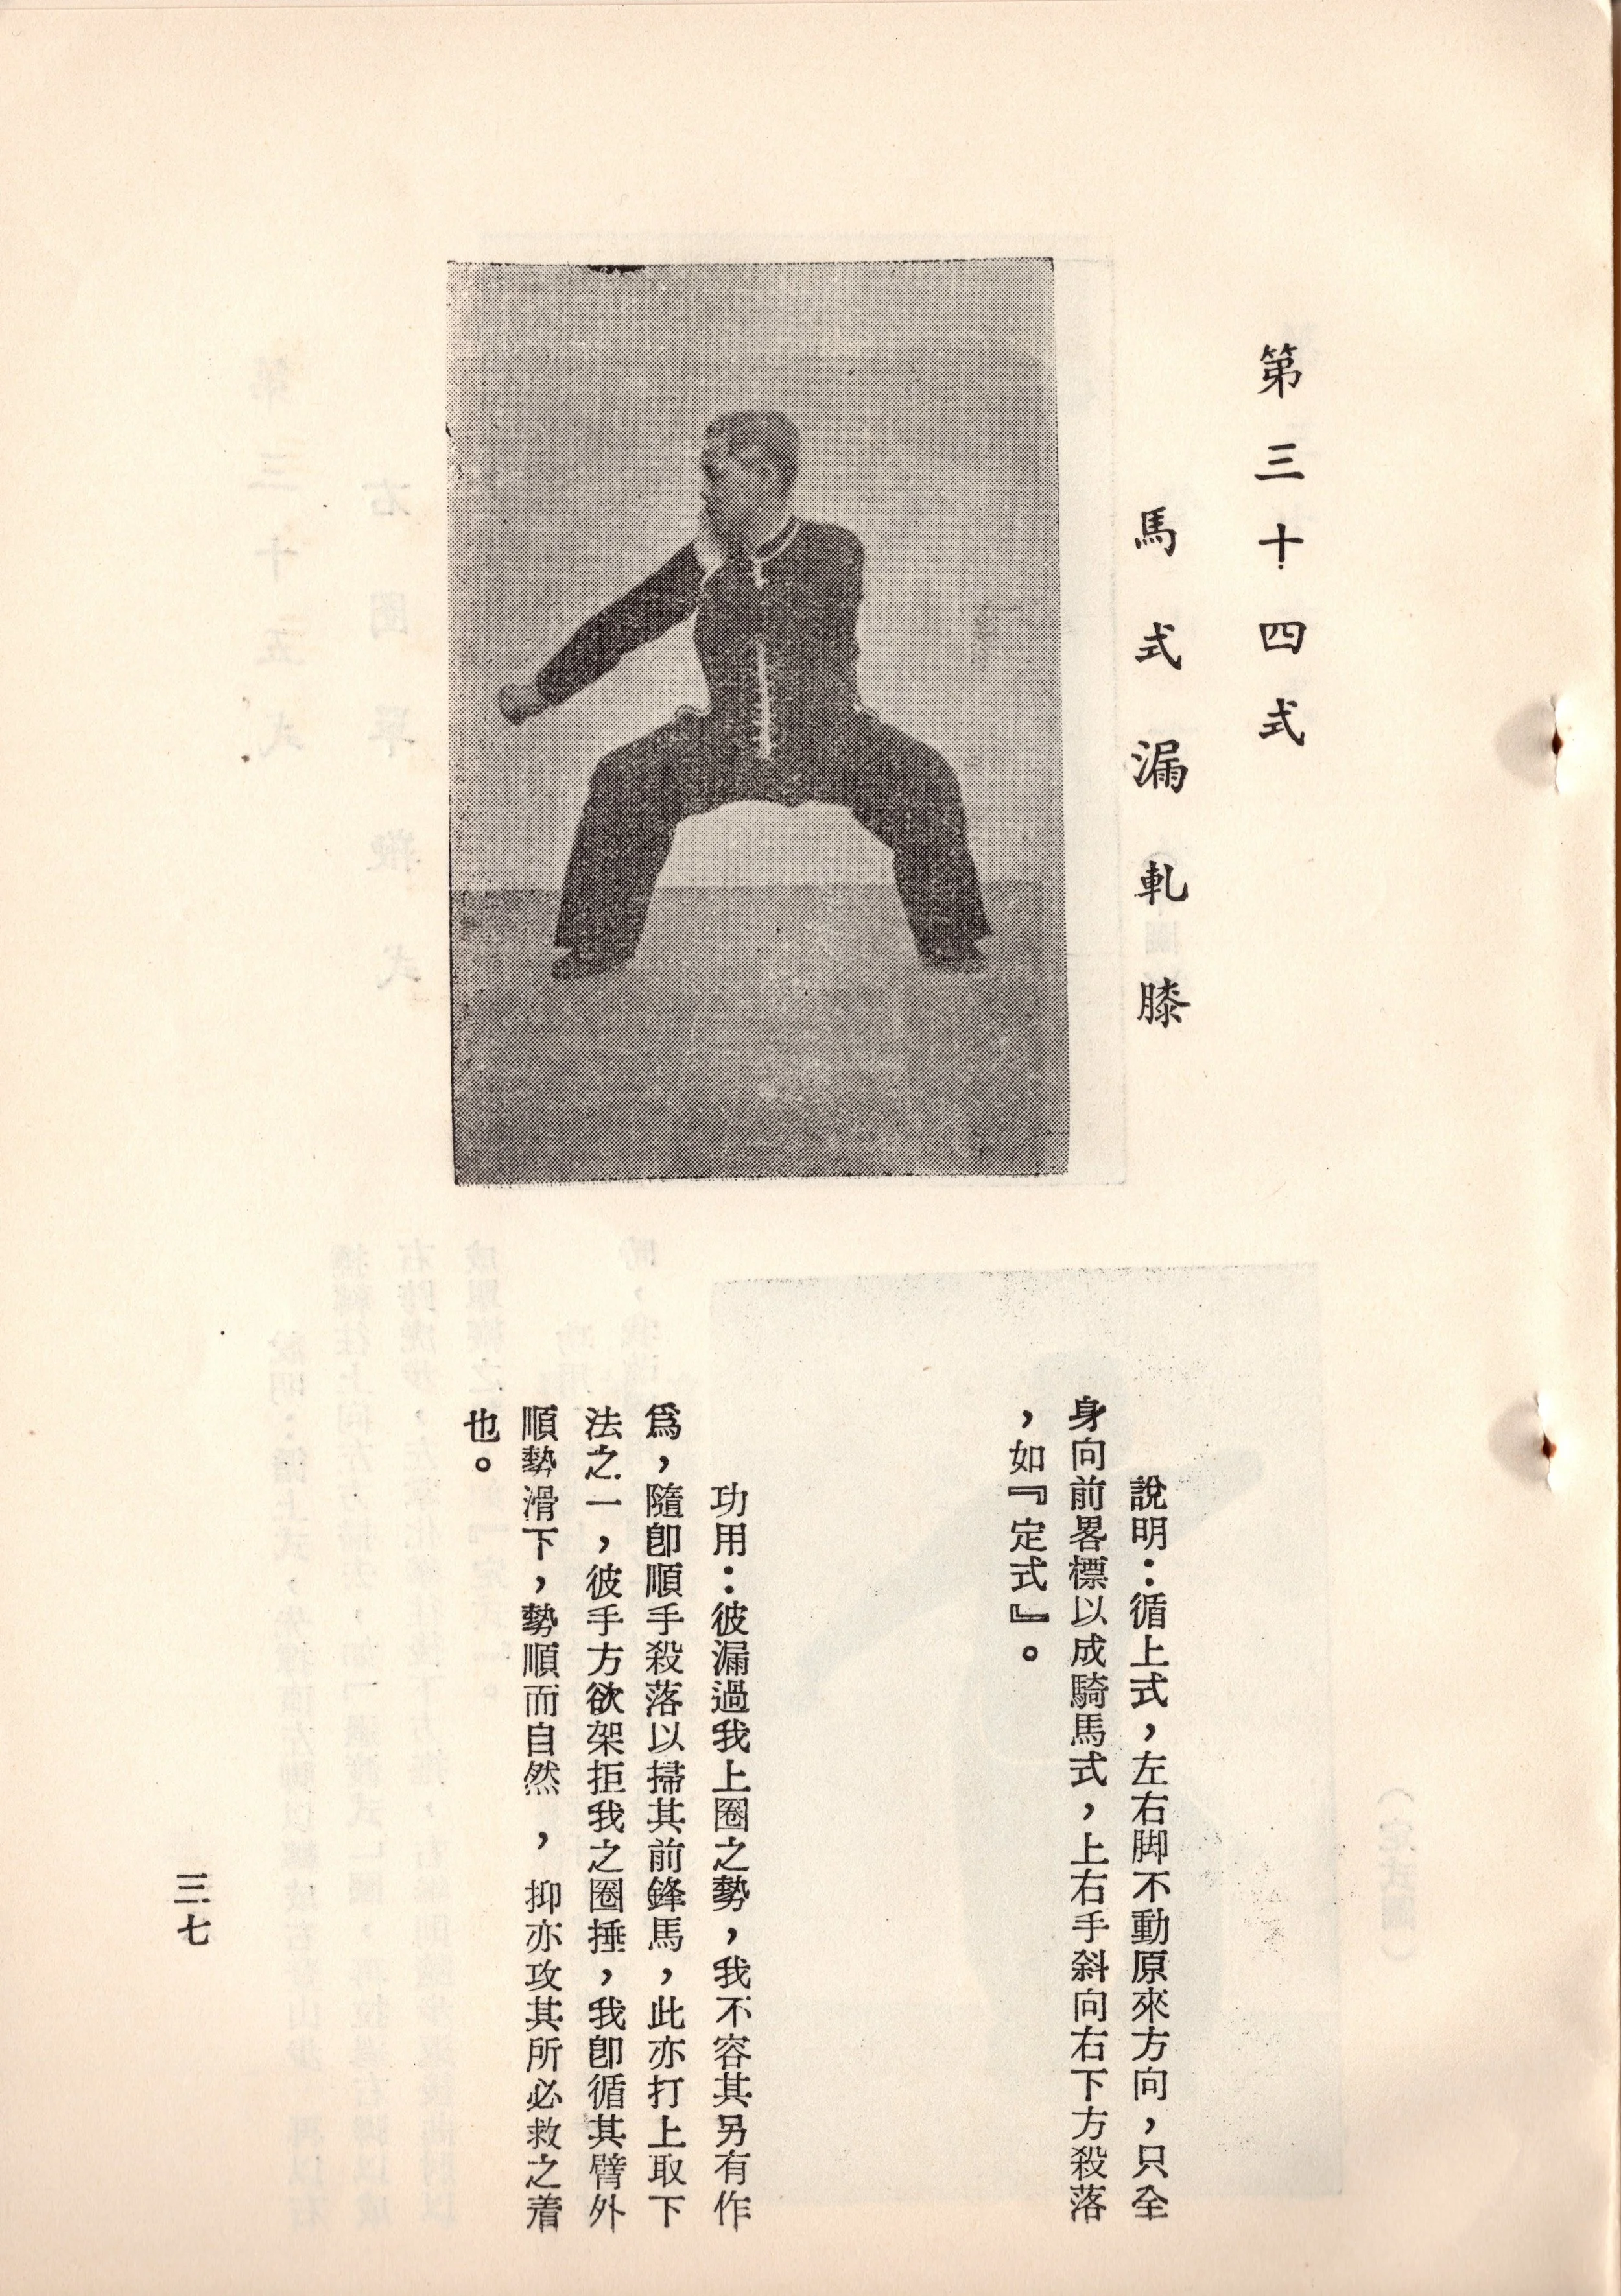 第三十四式
馬式漏軋膝
說明：循上式，左右脚不動原來方向，只全
身向前畧標以成騎馬式，上右手斜向右下方殺落
，如『定式』。
功用：彼漏過我上圈之勢，我不容其另有作
爲，隨卽順手殺落以掃其前鋒馬，此亦打上取下
法之一，彼手方欲架拒我之圈捶，我卽循其臂外
順勢滑下，勢順而自然，抑亦攻其所必救之着
也。
三七